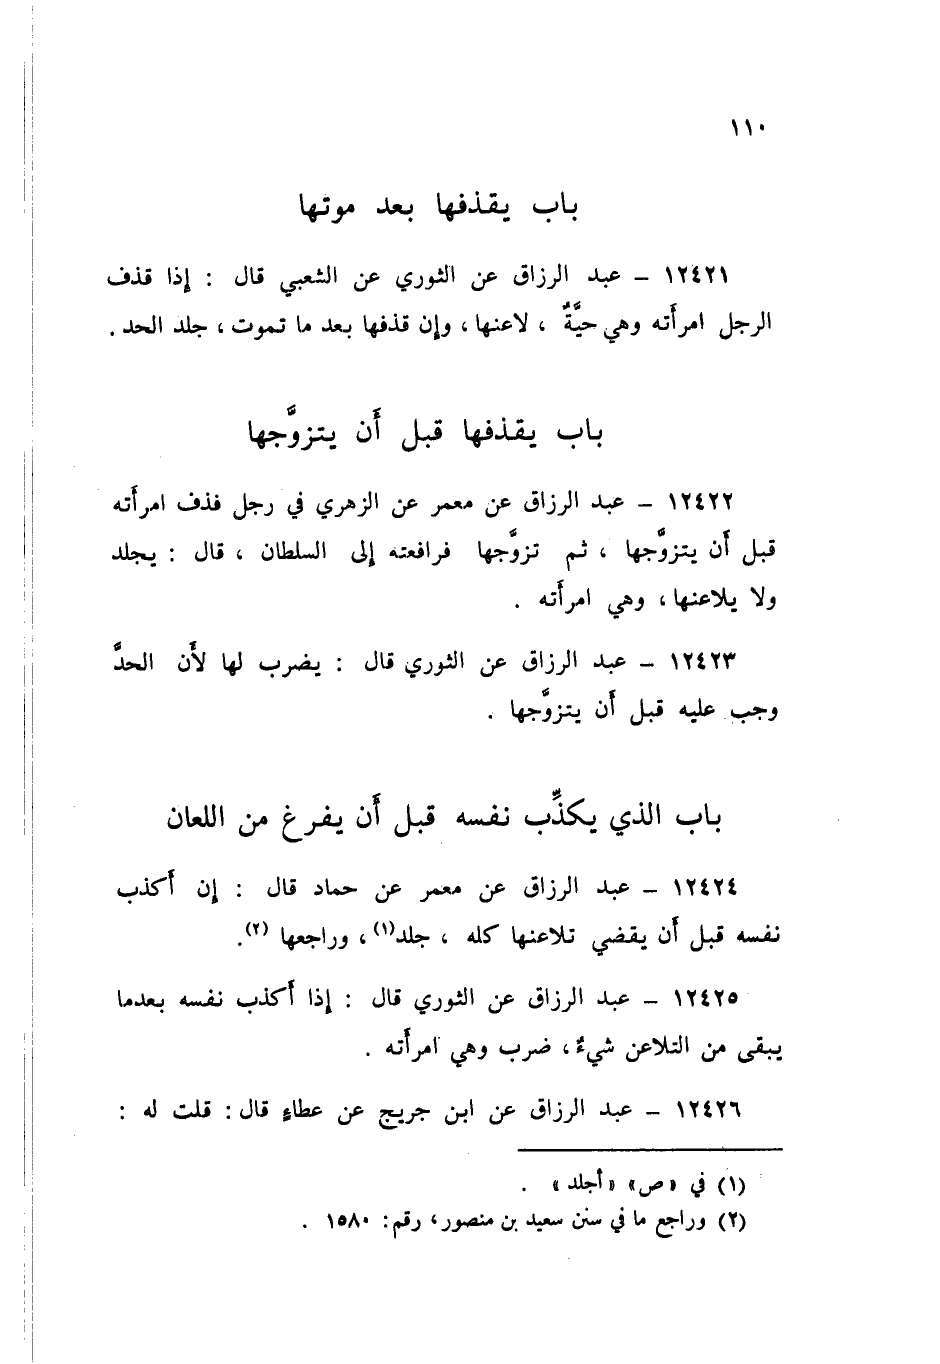 ١١٠
باب يقذفها بعد موتها
١٢٤٢١ – عبد الرزاق عن الثوري عن الشعبي قال : إذا قذف
الرجل امرأَته وهي حيَّةٌ ، لاعنها ، وإن قذفها بعد ما تموت ، جلد الحد .
باب يقذفها قبل أَن يتزوَّجها
١٢٤٢٢ – عبد الرزاق عن معمر عن الزهري في رجل قذف امرأَته
قبل أَن يتزوَّجها ، ثم تزوَّجها فرافعته إلى السلطان ، قال : يجلد
ولا يلاعنها ، وهي امرأَته .
١٢٤٢٣ – عبد الرزاق عن الثوري قال : يضرب لها لأَن الحدَّ
وجب عليه قبل أَن يتزوَّجها .
باب الذي يكذِّب نفسه قبل أَن يفرغ من اللعان
١٢٤٢٤ – عبد الرزاق عن معمر عن حماد قال : إن أَكذب
نفسه قبل أَن يقضي تلاعنها كله ، جلد(١) ، وراجعها (٢).
١٢٤٢٥ – عبد الرزاق عن الثوري قال : إذا أَكذب نفسه بعدما
يبقى من التلاعن شيءٌ ، ضرب وهي امرأَته .
١٢٤٢٦ – عبد الرزاق عن ابن جريج عن عطاءٍ قال : قلت له :
(١) في «ص» «أجلد» .
(٢) وراجع ما في سنن سعيد بن منصور ، رقم : ١٥٨٠ .